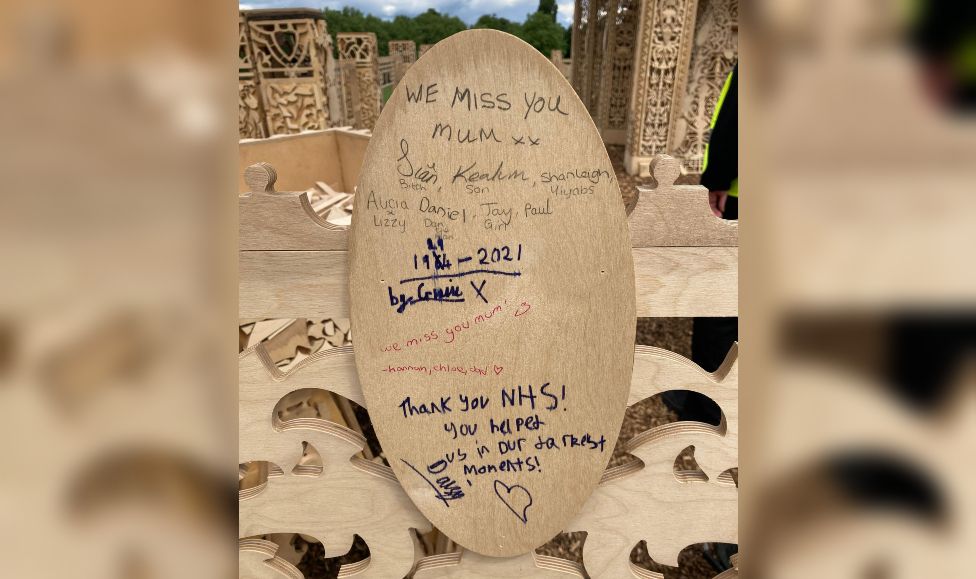 WE MISS YOU
MUM xx
Siân, Keahn, Shanleigh,
Bitch Son Yiyabs
Alicia Daniel, Jay, Paul
Lizzy Dan Girl
- 2021
by X
we miss you mum! <3
-hannah, chloe,
Thank you NHS!
you helped
us in our darkest
moments!